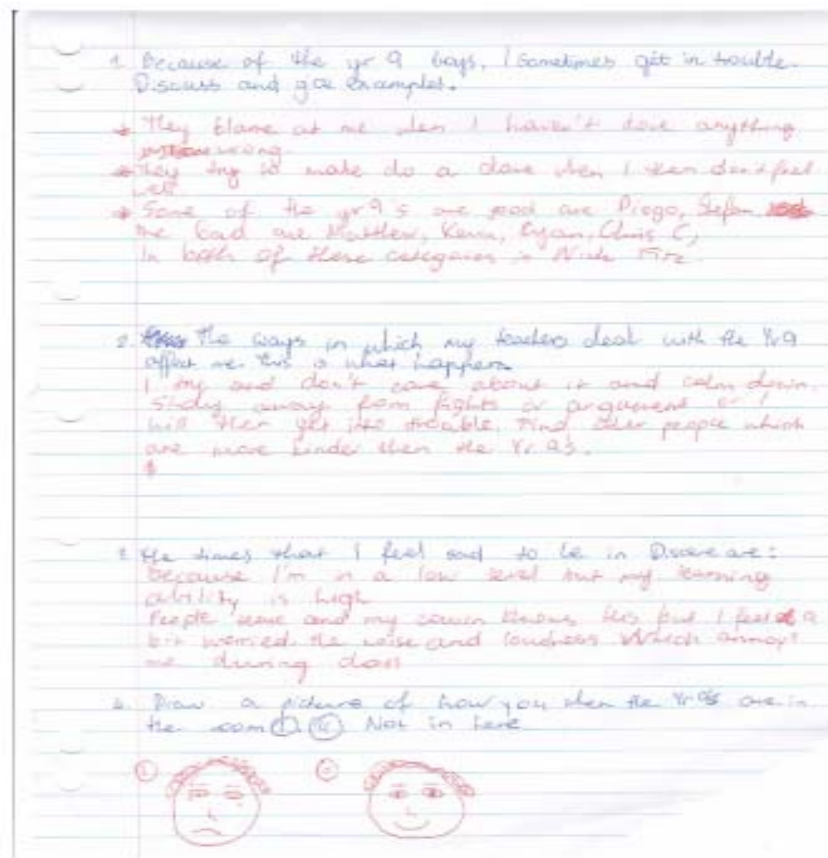 1. Because of the yr 9 boys, I sometimes get in trouble.
Discuss and give examples.
* They blame at me when I haven't done anything
wrong
* They try to make do a dare when I don't feel
well
* Some of the yr 9's are good are Diego, Stefan
The bad are Matthew, Kevin, Ryan, Chris C,
In both of these categories is Nick Fitz
2. The ways in which my teachers deal with the Yr 9
affect me. This is what happens
I try and don't care about it and calm down.
Stay away from fights or argument or I
will then get into trouble. Find other people which
are more kinder then the Yr 9's.
3. The times that I feel sad to be in are:
because I'm in a low level but my learning
ability is high
People and my cousin knows this but I feel a
bit worried. The noise and loudness which annoys
me during class
4. Draw a picture of how you when the Yr 9's are in
the room ① ② Not in here
① ②